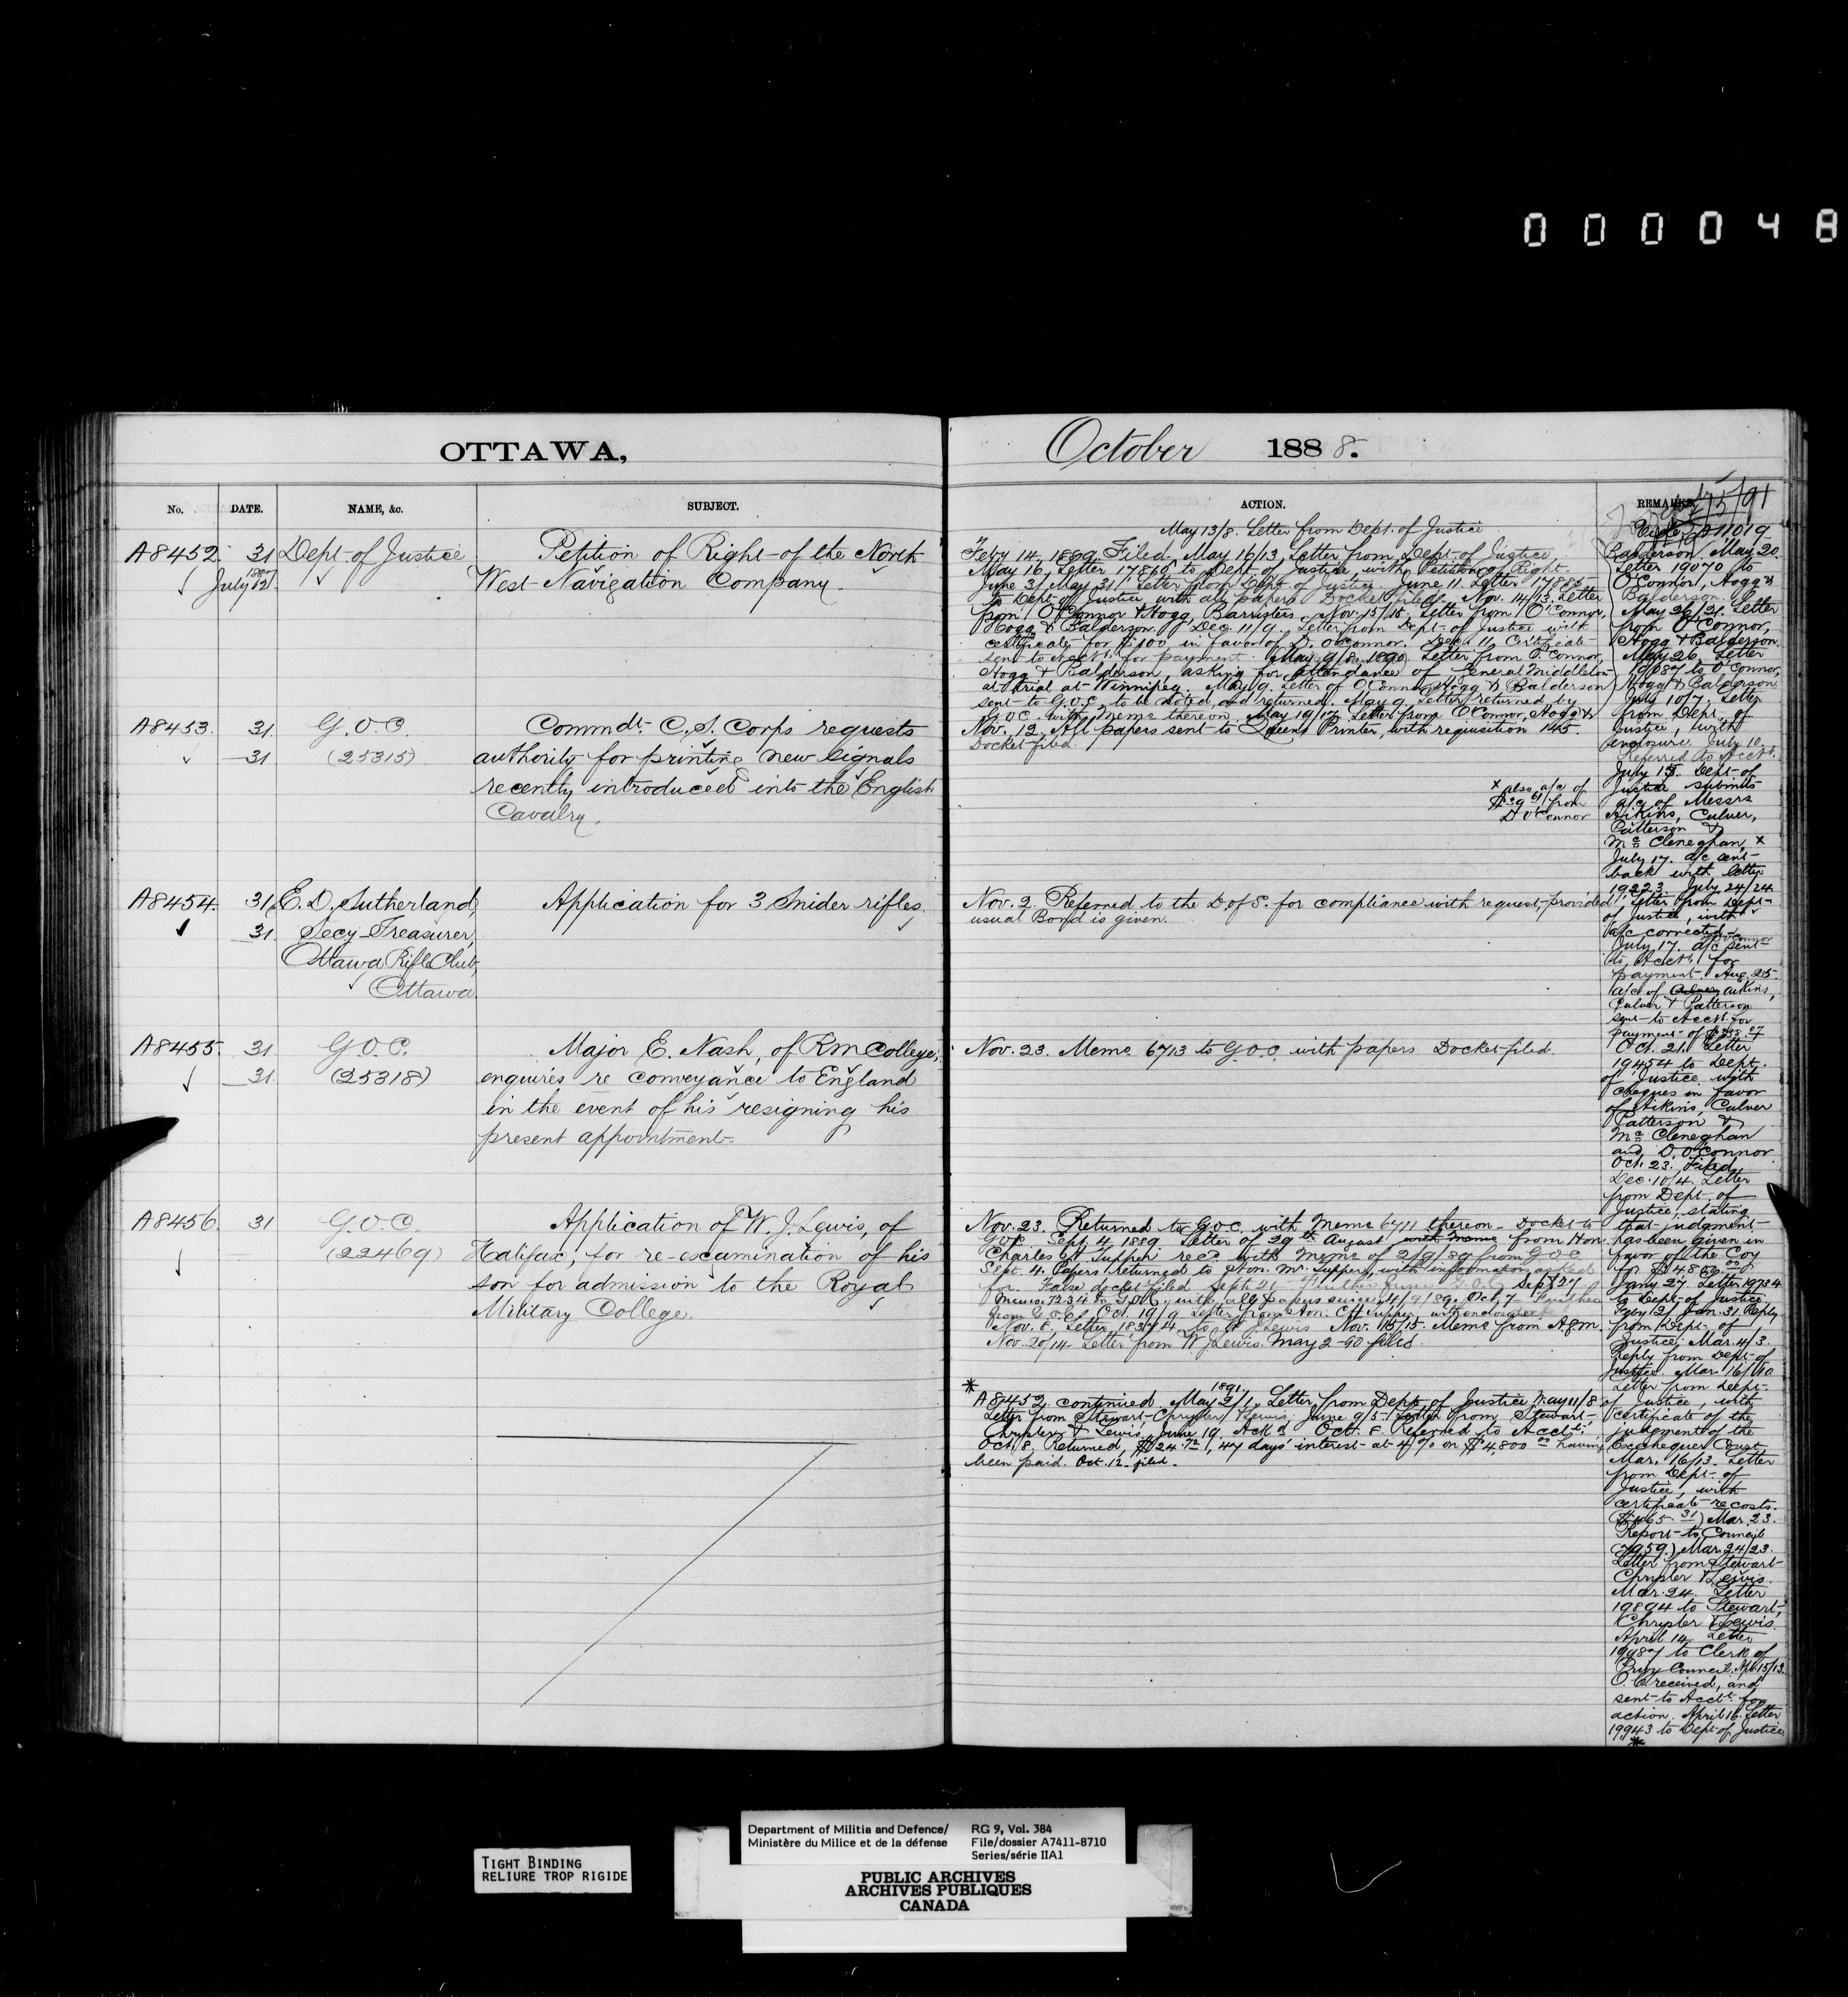 000048
OTTAWA,
October 1888.
No. DATE. NAME, &c. SUBJECT.
ACTION. REMARKS.
A8452. 31 Dept. of Justice
July 12
Petition of Right of the North
West Navigation Company.
May 13/8. Letter from Dept. of Justice
Feby 14. 1889. Filed. May 16/13. Letter from Dept of Justice.
May 16. Letter 17816 to Dept of Justice with Petition of Right.
June 3/May 31. Letter from Dept of Justice June 11. Letter 17885
to Dept of Justice with all papers Docket filed. Nov. 14/13. Letter
from O'Connor & Hogg, Barristers. Nov. 15/15. Letter from O'Connor,
Hogg & Balderson. Dec. 11/9. Letter from Dept. of Justice with
certificate for $100 in favor of D. O'Connor. Dec. 11. Certificate
sent to Acctt. for payment. (May 9/8, 1890) Letter from O'Connor,
Hogg & Balderson, asking for attendance of General Middleton
at trial at Winnipeg. May 9. Letter of O'Connor, Hogg & Balderson
sent to G.O.C. to be noted and returned. May 9. Letter returned by
G.O.C. with Memo thereon. May 19/17. Letter from O'Connor, Hogg &
A8453. 31 G.O.C.
31 (25315)
Commdt. C.S. Corps requests
authority for printing new signals
recently introduced into the English
Cavalry.
Nov. 12. All papers sent to Queens Printer, with requisition 145.
Docket filed.
x also a/c of
from
D O'Connor
A8454. 31 E. D. Sutherland,
31 Secy Treasurer,
Ottawa Rifle Club,
Ottawa.
Application for 3 Snider rifles.
Nov. 2. Referred to the D. of S. for compliance with request, provided
usual Bond is given.
A8455. 31 G.O.C.
31 (25318)
Major E. Nash, of R M College,
enquires re conveyance to England
in the event of his resigning his
present appointment.
Nov. 23. Memo 6713 to G.O.C. with papers Docket filed.
A8456. 31 G.O.C.
(22469)
Application of W. J. Lewis, of
Halifax, for re-examination of his
son for admission to the Royal
Military College.
Nov. 23. Returned to G.O.C. with Memo 6711 thereon. Docket to
G.O.C. Sept. 4. 1889 Letter of 29th August with memo from Hon.
Charles H Tupper rec'd with Memo of 2/9/89 from G.O.C.
Sept. 4. Papers returned to Hon. Mr. Tupper, with information asked
for. False docket filed. Sept. 21
Nov. 8. Letter to Lewis Nov. 15/15. Memo from A.G.M.
Nov. 20/14. Letter from W J Lewis. May 2-90 filed.
*
1891.
A8452 continued. May 2/1. Letter from Dept. of Justice May 11/8
Letter from Stewart, Chrysler & Lewis. June 9/5. Letter from Stewart,
Chrysler & Lewis. June 19. Ack'd Oct. 8. Referred to Acctt.
Oct. 8. Returned, $24.72, 47 days' interest at 4% on $4,800.00 having
been paid. Oct. 12. filed.
Vide A11019
Balderson. May 20
Letter 19070 to
O'Connor, Hogg &
Balderson.
May 26/21. Letter
from O'Connor,
Hogg & Balderson
May 26. Letter
19087 to O'Connor,
Hogg & Balderson
July 10/7. Letter
from Dept. of
Justice, with
enclosure. July 10.
Referred to Acctt.
July 15. Dept. of
Justice submits
a/c of Messrs
Aikins, Culver,
Patterson &
McCleneghan, x
July 17. a/c sent
back with letter
19223. July 24/24
Letter from Dept
of Justice, with
a/c corrected
July 17. a/c sent
to Acctt. for
payment. Aug. 25
a/c of Culver Aikins,
Culver & Patterson
sent to Acctt. for
payment of
Oct. 21. Letter
19454 to Dept.
of Justice with
cheques in favor
of Aikins, Culver
Patterson &
McCleneghan
and D. O'Connor
Oct. 23. Filed.
Dec. 10/4. Letter
from Dept. of
Justice, stating
that judgment
has been given in
favor of the Coy
for $4800
Jany 27. Letter 19734
to Dept of Justice
Feby 2/Jan. 31. Reply
from Dept. of
Justice. Mar. 4/3.
Reply from Dept. of
Justice. Mar. 16/10
Letter from Dept.
of Justice, with
certificate of the
judgment of the
Exchequer Court
Mar. 16/13. Letter
from Dept. of
Justice, with
certificate re costs.
Mar. 23.
Report to Council
(7959) Mar. 24/23.
Letter from Stewart
Chrysler & Lewis.
Mar. 24. Letter
19894 to Stewart,
Chrysler & Lewis.
April 14. Letter
19987 to Clerk of
Privy Council. Apl. 15/13.
O.C. received, and
sent to Acctt. for
action. April 16. Letter
19943 to Dept. of Justice
*
TIGHT BINDING
RELIURE TROP RIGIDE
Department of Militia and Defence/ RG 9, Vol. 384
Ministère du Milice et de la défense File/dossier A7411-8710
Series/série IIA1
PUBLIC ARCHIVES
ARCHIVES PUBLIQUES
CANADA